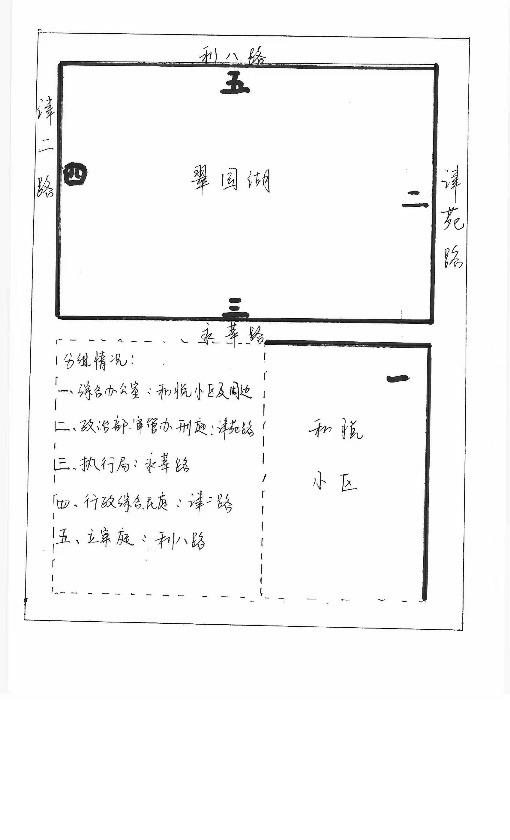 利八路
五
津二路
四
翠园湖
二
津苑路
三
永莘路
分组情况：
一、综合办公室：和悦小区及周边
二、政治部审管办刑庭：津苑路
三、执行局：永莘路
四、行政综合民庭：津二路
五、立案庭：利八路
一
和悦
小区